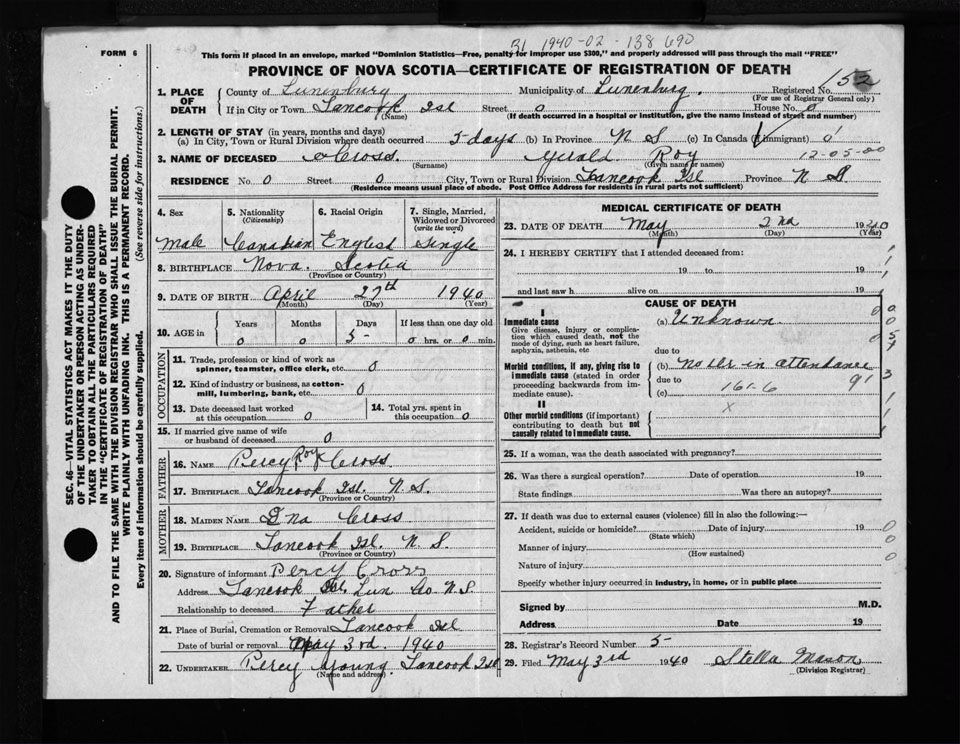 31 1940-02-138690
FORM 6
This form if placed in an envelope, marked "Dominion Statistics—Free, penalty for improper use $300," and properly addressed will pass through the mail "FREE"
PROVINCE OF NOVA SCOTIA—CERTIFICATE OF REGISTRATION OF DEATH
152
1. PLACE OF DEATH
County of Lunenburg Municipality of Lunenburg. Registered No.
(For use of Registrar General only)
If in City or Town Tancook Isl Street 0 House No. 0
(Name) (If death occurred in a hospital or institution, give the name instead of street and number)
2. LENGTH OF STAY (in years, months and days)
(a) In City, Town or Rural Division where death occurred 5-days (b) In Province N S (c) In Canada (if immigrant) 0
3. NAME OF DECEASED Cross Gerald Roy 12-05-00
(Surname) (Given name or names)
RESIDENCE No. 0 Street 0 City, Town or Rural Division Tancook Isl Province N S
(Residence means usual place of abode. Post Office Address for residents in rural parts not sufficient)
4. Sex
Male
5. Nationality
(Citizenship)
Canadian
6. Racial Origin
English
7. Single, Married, Widowed or Divorced
(write the word)
Single
8. BIRTHPLACE Nova Scotia
(Province or Country)
9. DATE OF BIRTH April 27th 1940
(Month) (Day) (Year)
10. AGE in Years Months Days If less than one day old
0 0 5- 0 hrs. or 0 min.
OCCUPATION
11. Trade, profession or kind of work as spinner, teamster, office clerk, etc. 0
12. Kind of industry or business, as cotton-mill, lumbering, bank, etc. 0
13. Date deceased last worked at this occupation 0
14. Total yrs. spent in this occupation 0
15. If married give name of wife or husband of deceased 0
FATHER
16. NAME Percy Roy Cross
17. BIRTHPLACE Tancook Isl. N.S.
(Province or Country)
MOTHER
18. MAIDEN NAME Ena Cross
19. BIRTHPLACE Tancook Isl. N.S.
(Province or Country)
20. Signature of informant Percy Cross
Address Tancook Isl. Lun Co N.S.
Relationship to deceased Father
21. Place of Burial, Cremation or Removal Tancook Isl
Date of burial or removal May 3rd. 1940
22. UNDERTAKER Percy Young Tancook Isl
(Name and address)
MEDICAL CERTIFICATE OF DEATH
23. DATE OF DEATH May 2nd 1940
(Month) (Day) (Year)
24. I HEREBY CERTIFY that I attended deceased from:
19 to 19
and last saw h alive on 19
CAUSE OF DEATH
I
Immediate cause
Give disease, injury or complication which caused death, not the mode of dying, such as heart failure, asphyxia, asthenia, etc
(a) Unknown
due to
Morbid conditions, if any, giving rise to immediate cause (stated in order proceeding backwards from immediate cause).
(b) No Dr in attendance
due to 161-6 91
(c)
II
Other morbid conditions (if important) contributing to death but not causally related to immediate cause.
x
25. If a woman, was the death associated with pregnancy?
26. Was there a surgical operation? Date of operation 19
State findings Was there an autopsy?
27. If death was due to external causes (violence) fill in also the following:—
Accident, suicide or homicide? Date of injury 19
(State which)
Manner of injury
(How sustained)
Nature of injury
Specify whether injury occurred in industry, in home, or in public place
Signed by M.D.
Address Date 19
28. Registrar's Record Number 5-
29. Filed May 3rd 1940 Stella Mason
(Division Registrar)
SEC. 46—VITAL STATISTICS ACT MAKES IT THE DUTY
OF THE UNDERTAKER OR PERSON ACTING AS UNDER-
TAKER TO OBTAIN ALL THE PARTICULARS REQUIRED
IN THE "CERTIFICATE OF REGISTRATION OF DEATH"
AND TO FILE THE SAME WITH THE DIVISION REGISTRAR WHO SHALL ISSUE THE BURIAL PERMIT.
WRITE PLAINLY WITH UNFADING INK. THIS IS A PERMANENT RECORD.
Every item of information should be carefully supplied. (See reverse side for instructions.)